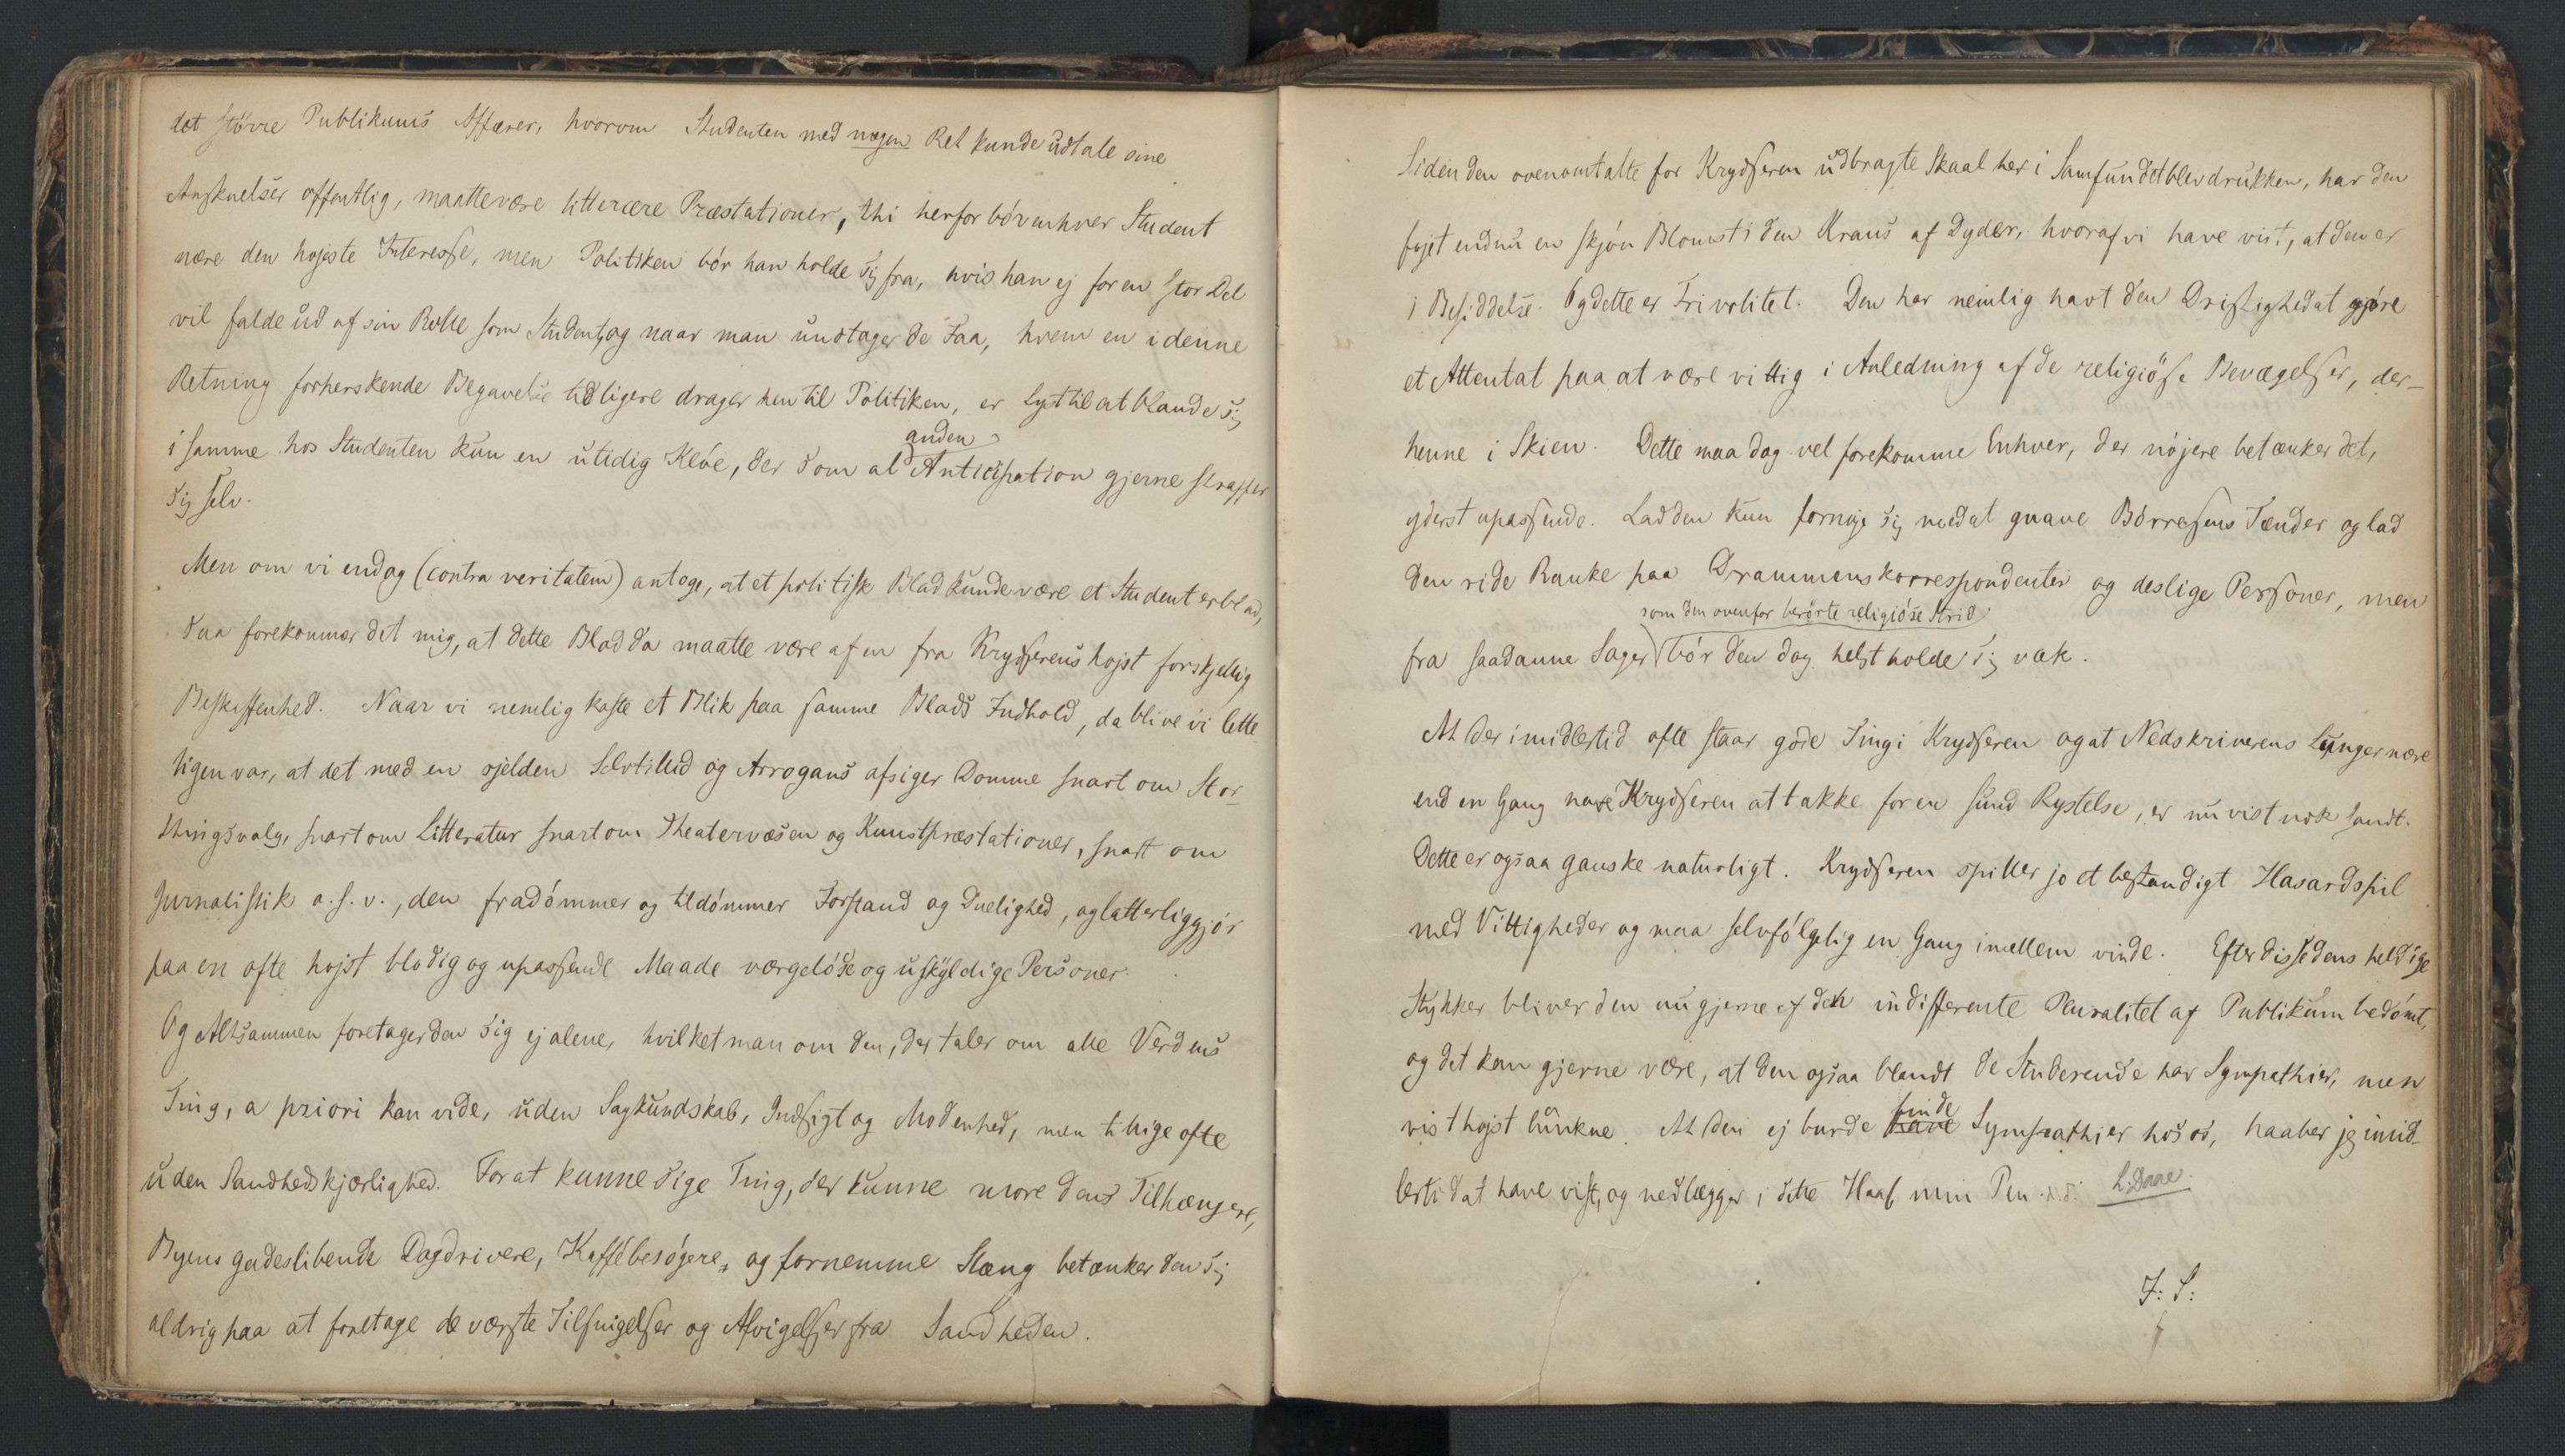 det større Publikums Affærer, hvorom Studenten med nogen Ret kunde udtale sine
Anskuelser offentlig, maatte være litterære Præstationer, thi herfor bör enhver Student
nære den højeste Interesse, men Politiken bör han holde sig fra, hvis han ej for en stor Del
vil falde ud af sin Rolle som Student, og naar man undtager de Faa, hvem en i denne
Retning forherskende Begavelse tidligere drager hen til Politiken, er Lyst til at blande sig
i samme hos Studenten kun en utidig Klöe, der som al anden Anticipation gjerne straffer
sig selv.
Men om vi endog (contra veritatem) antoge, at et politisk Blad kunde være et Studenterblad,
saa forekommer det mig, at dette Blad da maatte være af en fra Krydserens højst forskjellig
Beskaffenhed. Naar vi nemlig kaste et Blik paa samme Blads Indhold, da blive vi lette
ligen var, at det med en sjelden Selvtillid og Arrogans afsiger Domme snart om Stor-
thingsvalg, snart om Litteratur snart om Theatervæsen og Kunstpræstationer, snart om
Jurnalistik o.s.v., den fradömmer og tildömmer Forstand og Duelighed, og latterliggjör
paa en ofte højst blodig og upassende Maade værgelöse og uskyldige Personer.
Og Altsammen foretager den sig ej alene, hvilket man om den, der taler om alle Verdens
Ting, a priori kan vide, uden Sagkundskab, Indsigt og Modenhed, men tillige ofte
uden Sandhedskjærlighed. For at kunne sige Ting, der kunne more dens Tilhængere,
Byens gadeslibende Dagdrivere, Kaffébesögere, og fornemme Slæng betænker den sig
aldrig paa at foretage de værste Tilsnigelser og Afvigelser fra Sandheden.
Siden den ovenomtalte for Krydseren udbragte Skaal her i Samfundet blev drukken, har den
föjet endnu en skjön Blomst i den Krans af Dyder, hvoraf vi have vist, at den er
i Besiddelse. Og dette er Frivolitet. Den har nemlig havt den Dristighed at gjöre
et Attentat paa at være vittig i Anledning af de religiöse Bevægelser, der-
henne i Skien. Dette maa dog vel forekomme Enhver, der nöjere betænker det,
yderst upassende. Lad den kun fornöje sig med at gnave Börresens Tænder og lad
den ride Ranke paa Drammenskorrespondenter og deslige Personer, men
som den ovenfor berörte religiöse Strid
fra saadanne Sager bör den dog helst holde sig væk.
At der imidlertid ofte staar gode Ting i Krydseren og at Nedskriverens Lunger mere
end en Gang have Krydseren at takke for en sund Rystelse, er nu vist nok sandt.
Dette er ogsaa ganske naturligt. Krydseren spiller jo et bestandigt Hasardspil
med Vittigheder og maa selvfölgelig en Gang imellem vinde. Efter disse dens heldige
Stykker bliver den nu gjerne af den indifferente Pluralitet af Publikum bedömt,
og det kan gjerne være, at den ogsaa blandt de Studerende har Sympathier, men
vist højst lunkne. At den ej burde finde Sympathier hos os, haaber jeg imid-
lertid at have vist, og nedlægger i dette Haab min Pen. L. Daae.
J: S: